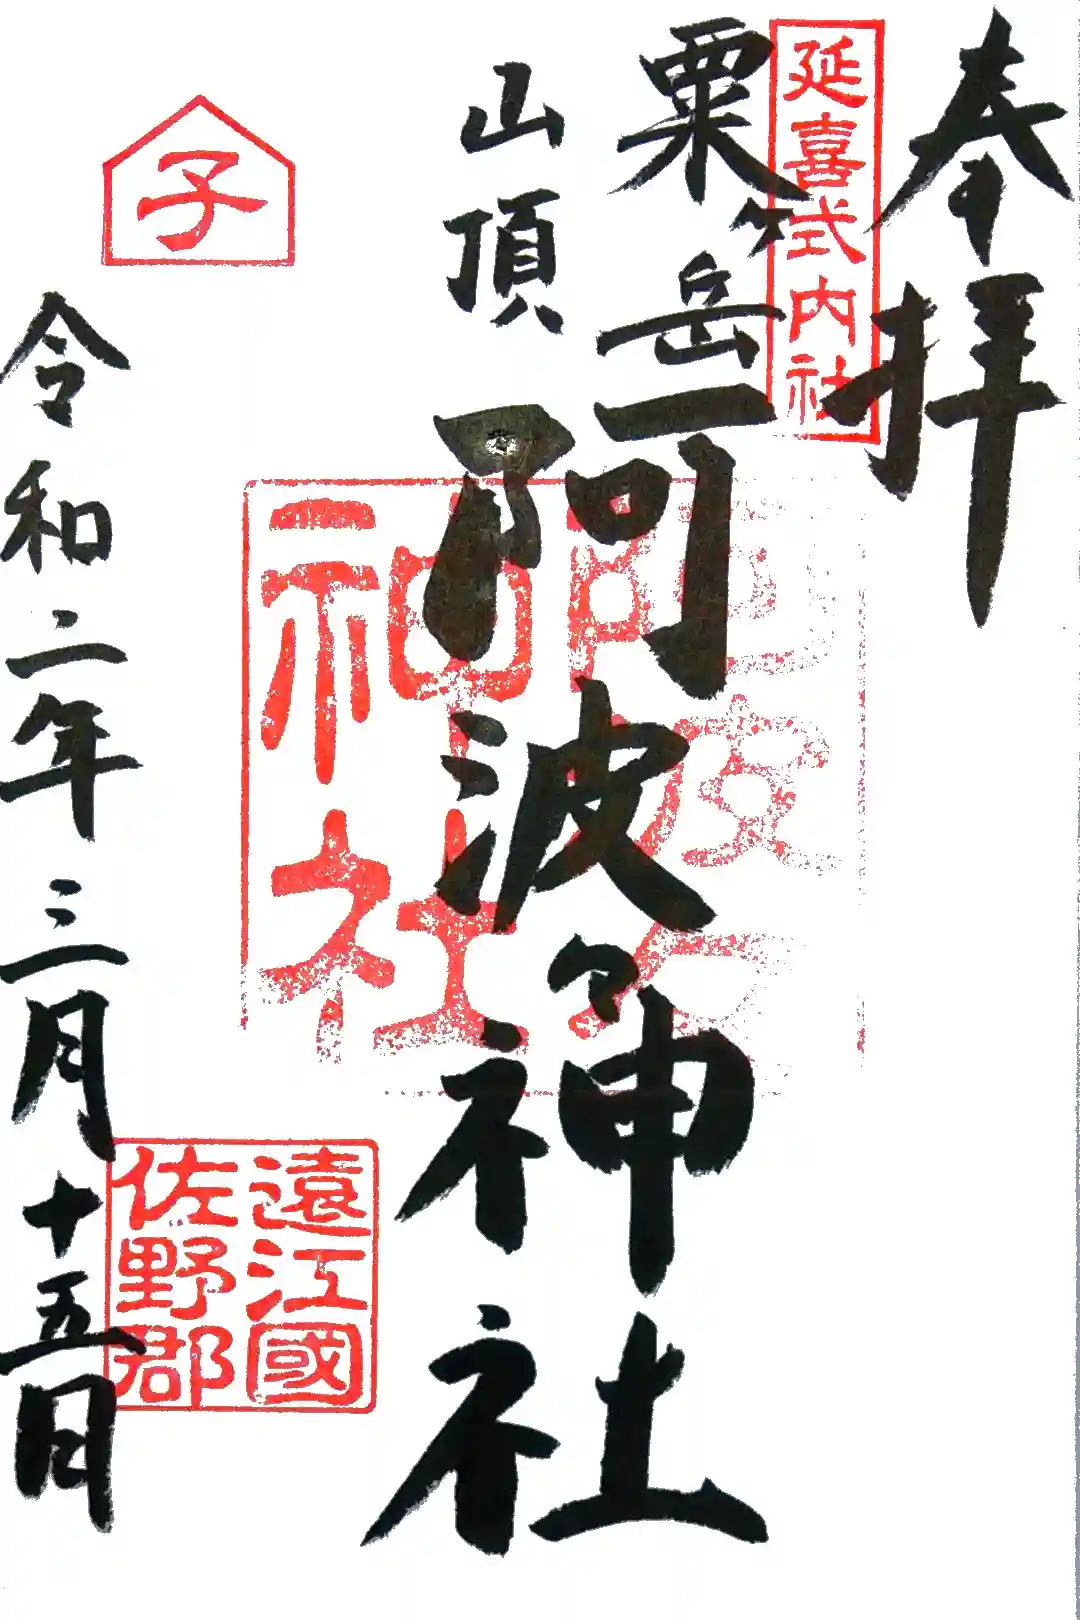 奉拝
延喜式内社
粟ヶ岳
山頂
阿波々神社
阿波々神社
子
遠江國
佐野郡
令和二年三月十五日